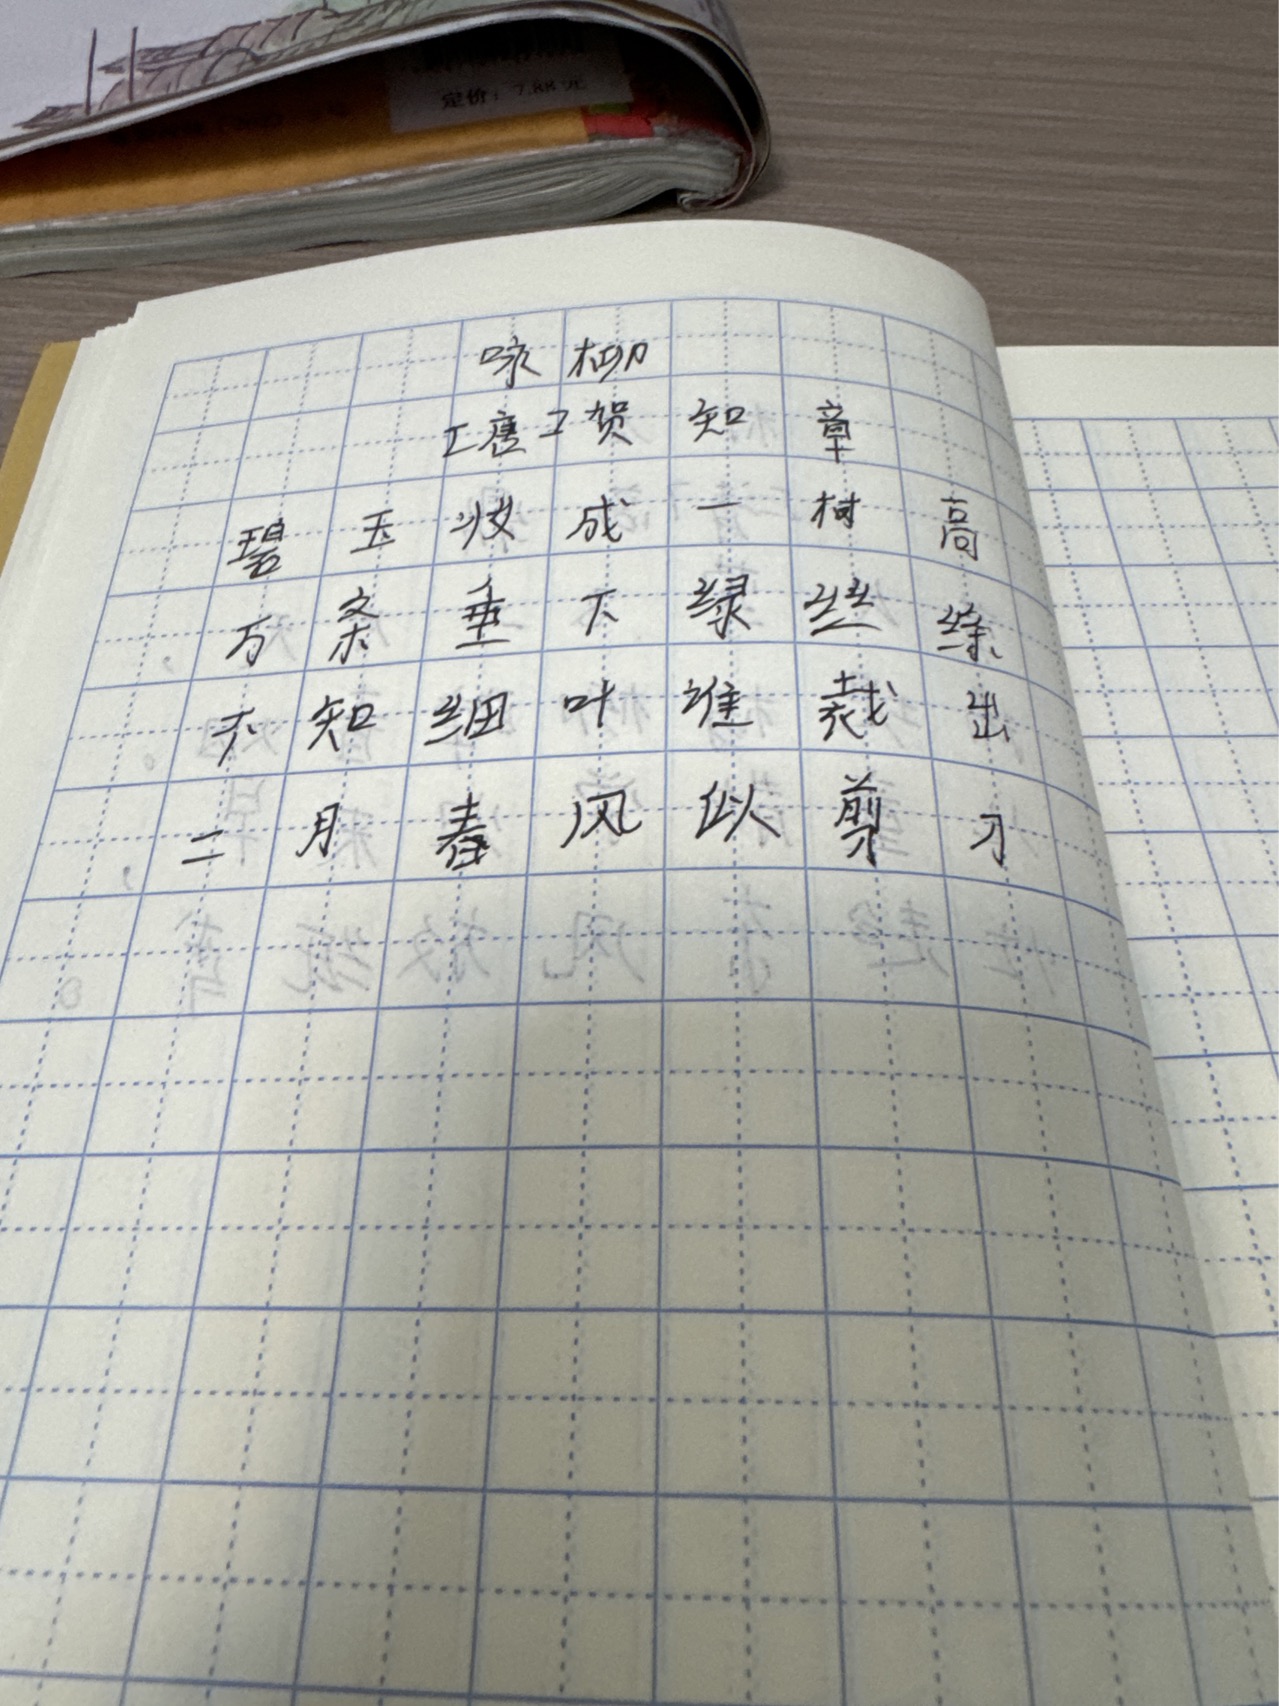 定价：7.88元
咏柳
[唐]贺知章
碧玉妆成一树高
万条垂下绿丝绦
不知细叶谁裁出
二月春风似剪刀